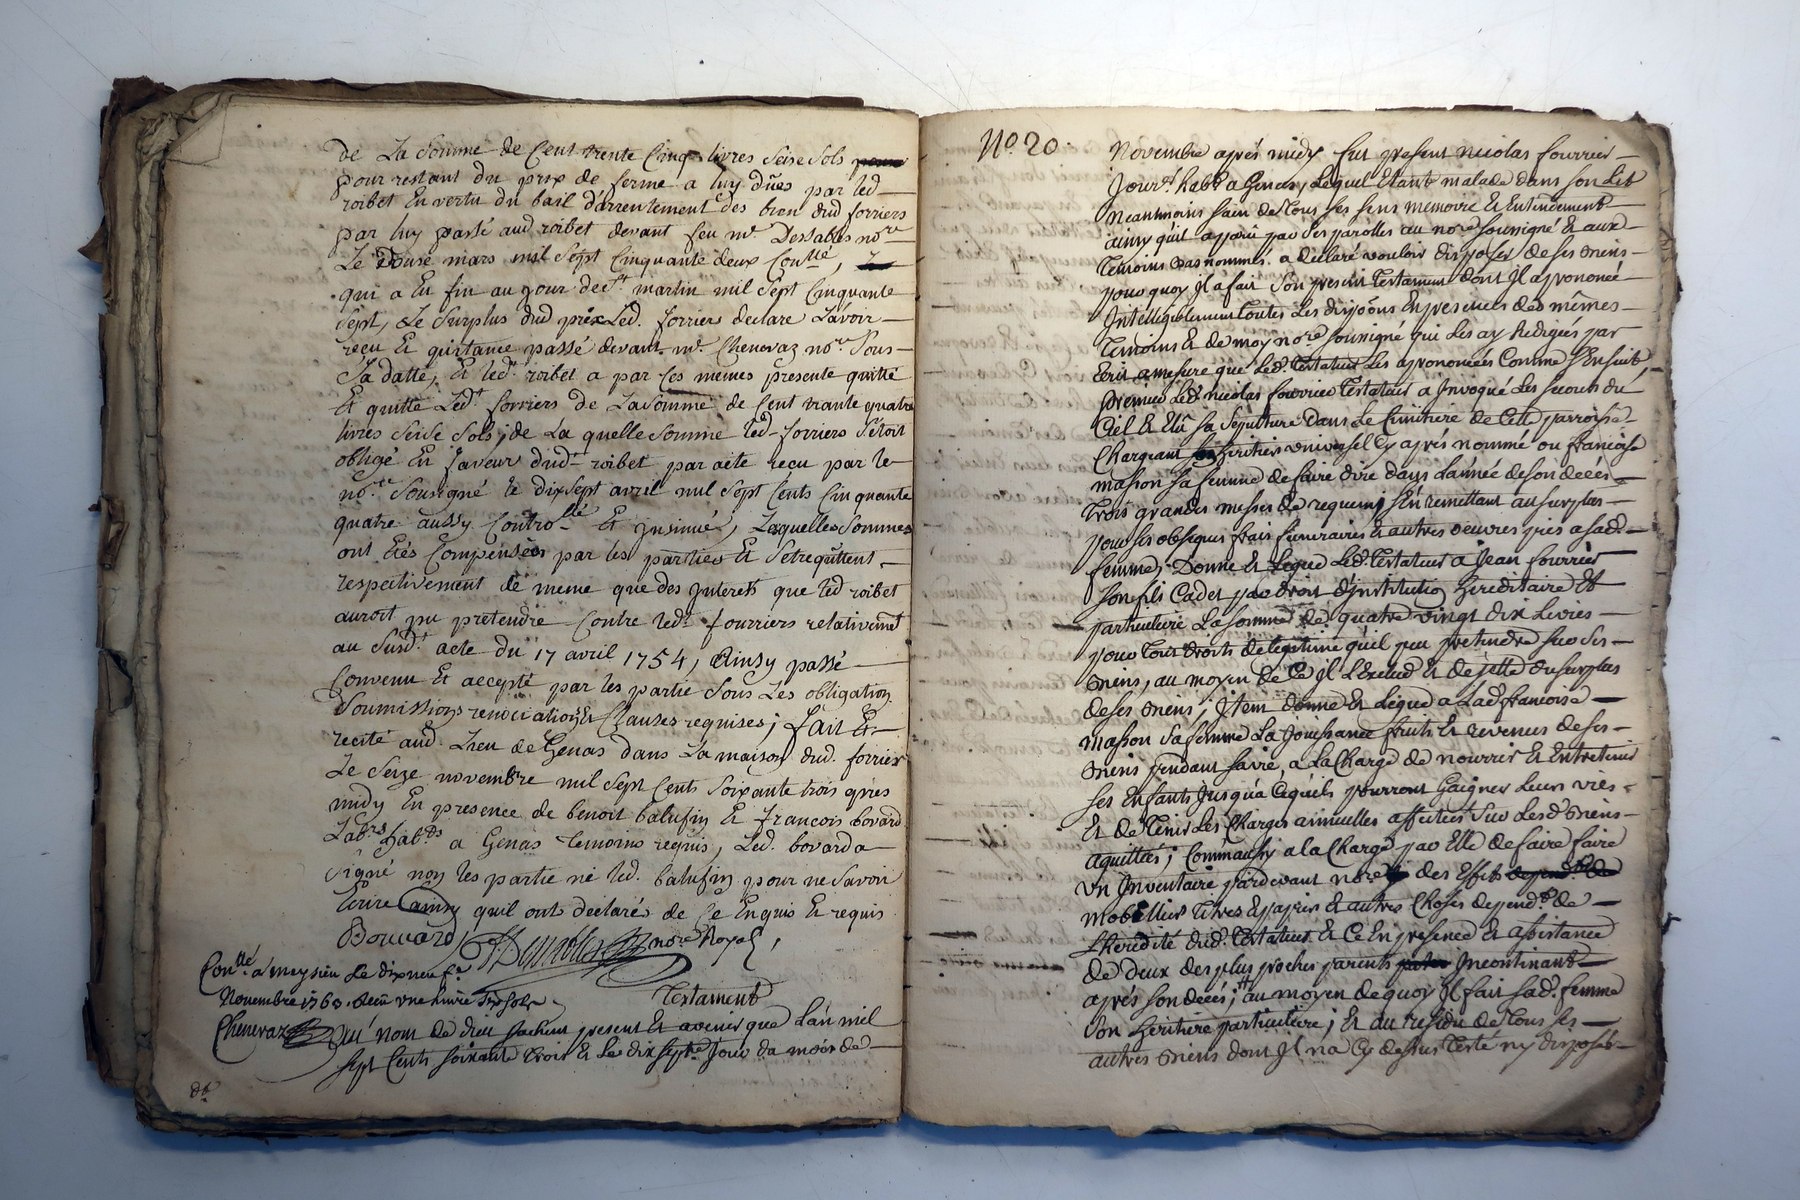 de La Somme de Cent trente Cinq livres Seise Sols
pour restant du prix de ferme a luy dües par led
roibet En vertu du bail d'arrentement des bien dud forriers
par luy passé aud roibet devant feu me Dessables nore
Le Douse mars mil Sept Cinquante deux Conllé,
qui a Eu fin au jour de st martin mil Sept Cinquante
Sept, & Le Surplus dud prix Led. forriers declare Lavoir
reçu Et quittance passé devant me Chenevaz nore Sous
Sa datte, Et led. roibet a par Ces memes presente quitté
Et quitte Ledt forriers de La Somme de Cent trante quatre
livres Seise Sols, de La quelle Somme led forriers Setoit
obligé En faveur dudt roibet par acte reçu par le
nore Sousigné le dixsept avril mil Sept Cents Cinquante
quatre aussy Controllé Et Insinué, Lesquelles Sommes
ont Etés Compensées par les parties Et Setrequittent
respectivement de meme que des Interets que led roibet
auroit pu pretendre Contre ledt fourriers relativemet
au Susdt acte du 17 avril 1754, Ainsy passé
Convenu Et accepté par les partie Sous Les obligation
Soumissions renociation & Clauses requises; fait Et
recité aud. Lieu de Genas dans La maison dud. forrier
Le Seize novembre mil Sept Cents Soixante trois après
midy En presence de benoit balufin Et françois bovard
Labrs habts a Genas temoins requis, Led. bovard a
Signé non les partie ni led. balufin pour ne Savoir
Ecrire ainsy quil ont declarés de Ce Enquis Et requis
Bouvard, nore Royal,
Conllé a meysieu Le dixneufe
Novembre 1763. Reçu une livre Six sols
Chenevaz
Testament
Au nom de dieu sachent present Et avenir que L'an mil
sept Cents soixante trois & Le dix septe Jour du mois de
No. 20.
Novembre après midy fut present nicolas fourrier
Jourr. habt a Genas, Lequel Etant malade dans son Lit
neantmoins sain de Tous ses sens memoire & Entendement
ainsy quil apparu par Ses parolles au nore sousigné & aux
temoins bas nommés. a declaré vouloir disposer de ses biens
pour quoy Il a fait Son present Testament dont Il a prononcé
Intelligiblement toutes Les dispõons En presences des mêmes
Temoins & de moy nore sousigné qui Les ay Redigées par
Ecrit a mesure que Led. Testateur Les a prononcées Comme S'Ensuit,
premier Led. nicolas fourrier Testateur a Invoqué Les secours du
Ciel & Elû sa Sepulture Dans Le Cimitiere de Cette parroisse
Chargeant heritier universel Cy après nommé ou françoise
masson sa femme de faire dire dans L'année de son decés
Trois grandes messes de requiem; s'En remettant au surplus
pour ses obseques frais funeraires & autres oeuvres pies a sad.
femme, Donne & Legue Led. Testateur a Jean fourrier
son fils Cadet par droit d'institution Hereditaire Et
particuliere La somme de quatre vingt dix Livres
pour Tous droits de legitime qu'il peu pretendre sur Ses
biens, au moyen de Ce Il L'Exclud & dejette du surplus
de ses biens; Item donne & Legue a Lad. françoise
masson Sa femme La Jouissance fruits & revenus de ses
biens pendant Sa vie, a La Charge de nourrir & Entretenir
ses Enfants Jusqu'a Ce qu'ils pourront Gaigner Leurs vies
Et de Tenir Les Charges annuelles affectées sur Lesd. biens
aquittées; Comm'aussy a la Charge par Elle de faire faire
un Inventaire pardevant nore des Effets
mobilier Titres & papier & autres Choses dependts de
L'heredité dud. Testateur & Ce En presence & assistance
de deux des plus proches parents Incontinant
après son decés; au moyen de quoy Il fait sad. femme
Son Heritiere particuliere; Et au residu de Tous ses
autres biens dont Il n'a Cy dessus Testé ny disposés